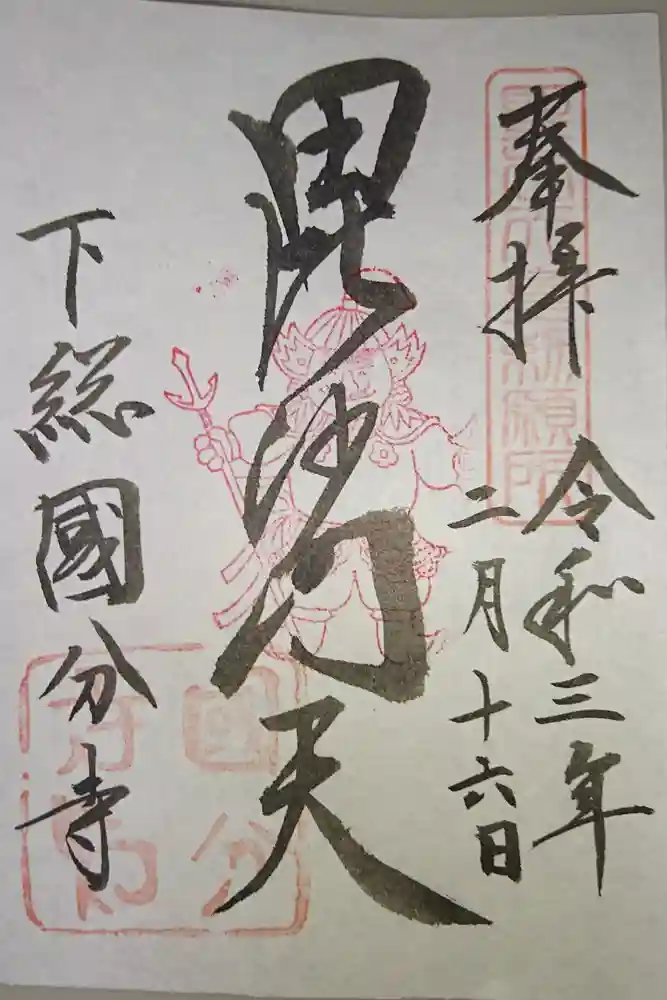 奉拝
令和三年
二月十六日
毘沙門天
下総國分寺
勅願院
國分寺印